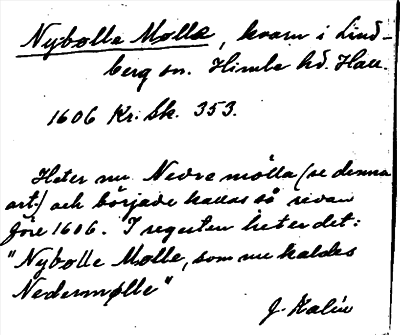 Nybølle Mølle, kvarn i Lind-
berg sn. Himle hd. Hall.
1606 Kr. Sk. 353.
Heter nu Nedre mölla (se denna
art.) och började kallas så redan
före 1606. I regesten heter det:
"Nybølle Mølle, som nu kaldes
Nedermølle"
J. Kalén